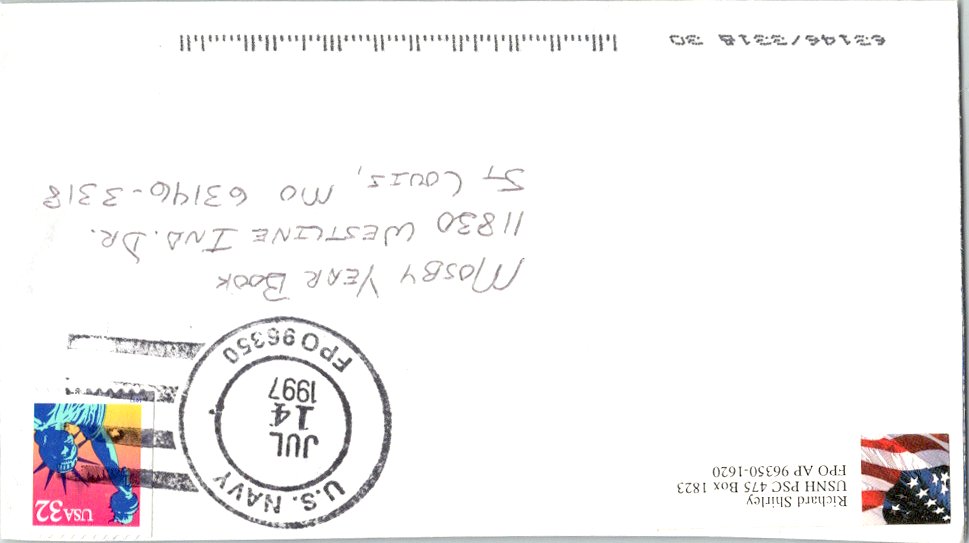 Richard Shirley
USNH PSC 475 Box 1823
FPO AP 96350-1620
USA 32
U.S. NAVY
JUL
14
1997
FPO 96350
MOSBY YEAR BOOK
11830 WESTLINE IND. DR.
ST LOUIS, MO 63146-3318
63146/3318 30